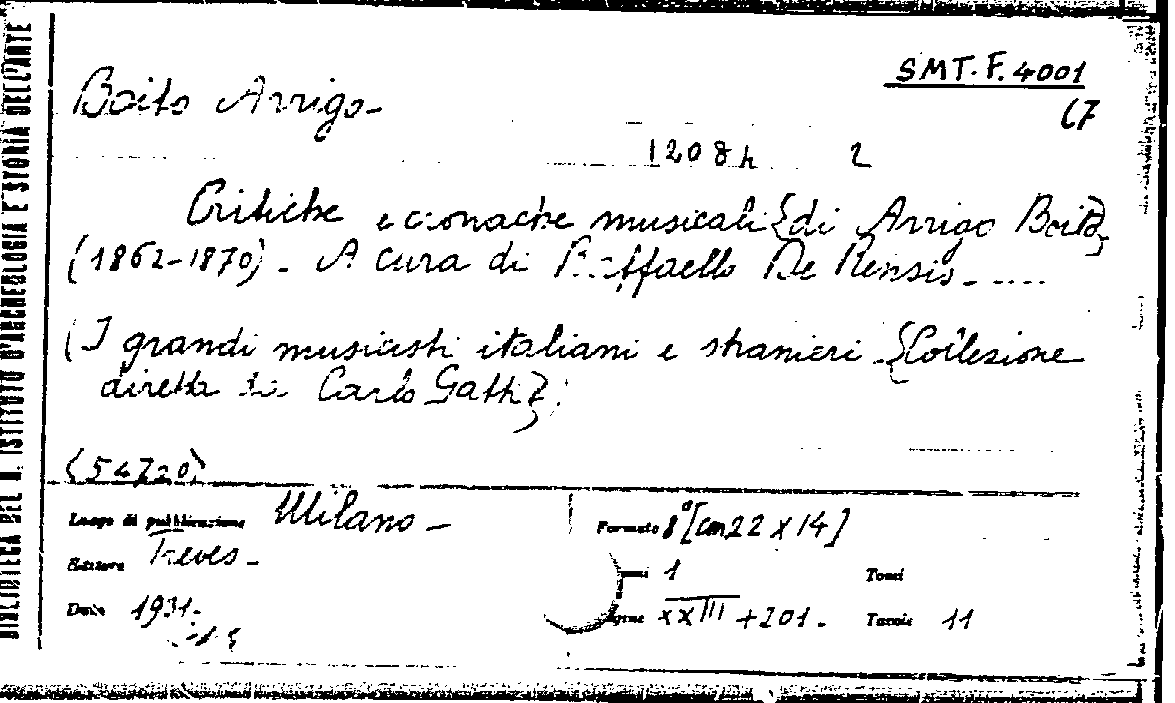 BIBLIOTECA DEL R. ISTITUTO D'ARCHEOLOGIA E STORIA DELL'ARTE
SMT. F. 4001
Boito Arrigo-
(7
1208h 2
Critiche e cronache musicali {di Arrigo Boito}
(1862-1870). A cura di Raffaello De Rensis - ....
(I grandi musicisti italiani e stranieri {Collezione
diretta da Carlo Gatti})
(54720)
Luogo di pubblicazione Milano - Formato 8° [cm 22 x 14]
Editore Treves -
1 Tomi
Data 1931.
Pagine XXIII + 201. Tavole 11